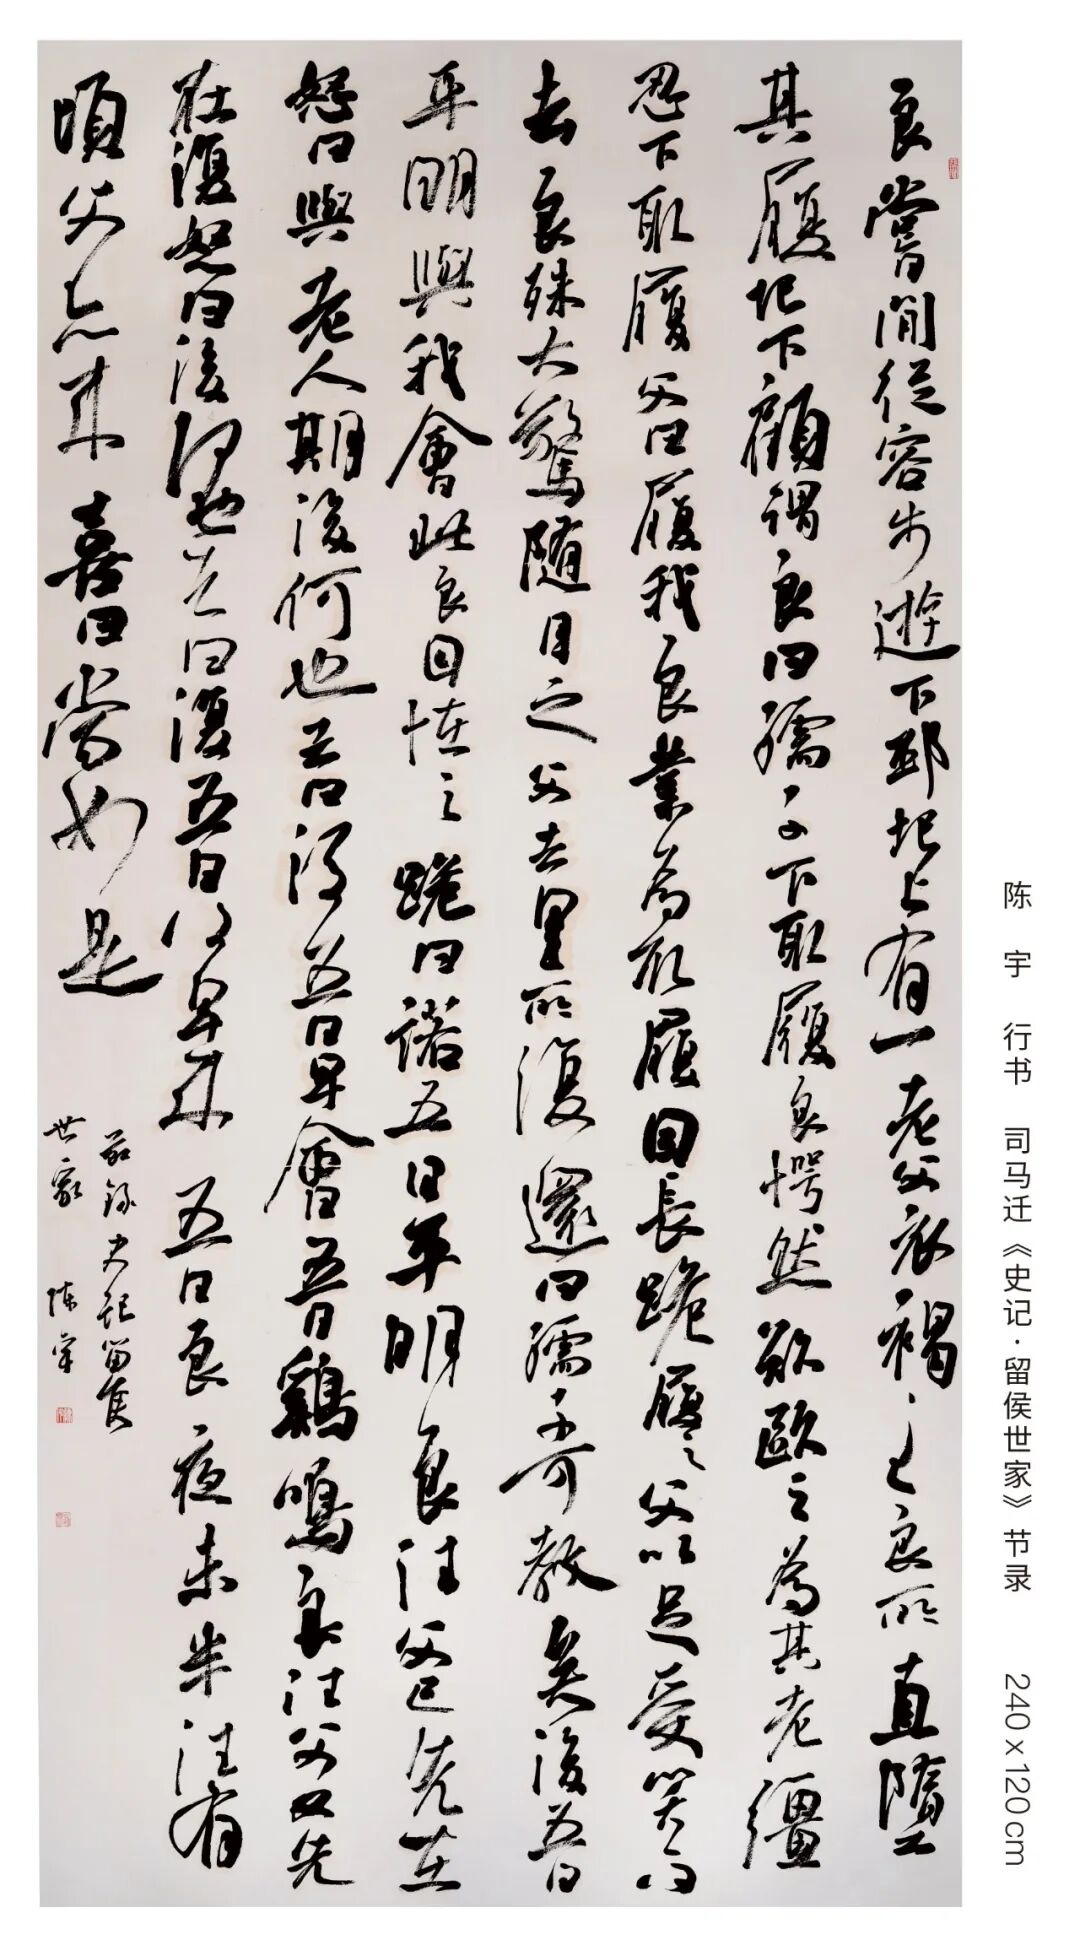 良嘗閒從容步遊下邳圯上有一老父衣褐至良所直墮
其履圯下顧謂良曰孺子下取履良愕然欲歐之為其老彊
忍下取履父曰履我良業為取履因長跪履之父以足受笑而
去良殊大驚隨目之父去里所復還曰孺子可教矣後五日
平明與我會此良因怪之跪曰諾五日平明良往父已先在
怒曰與老人期後何也去曰後五日早會五日鷄鳴良往父又先
在復怒曰後何也去曰復五日復早來五日良夜未半往有
頃父亦來喜曰當如是
節錄史記留侯
世家 陳宇
陈宇 行书 司马迁《史记·留侯世家》节录 240×120cm